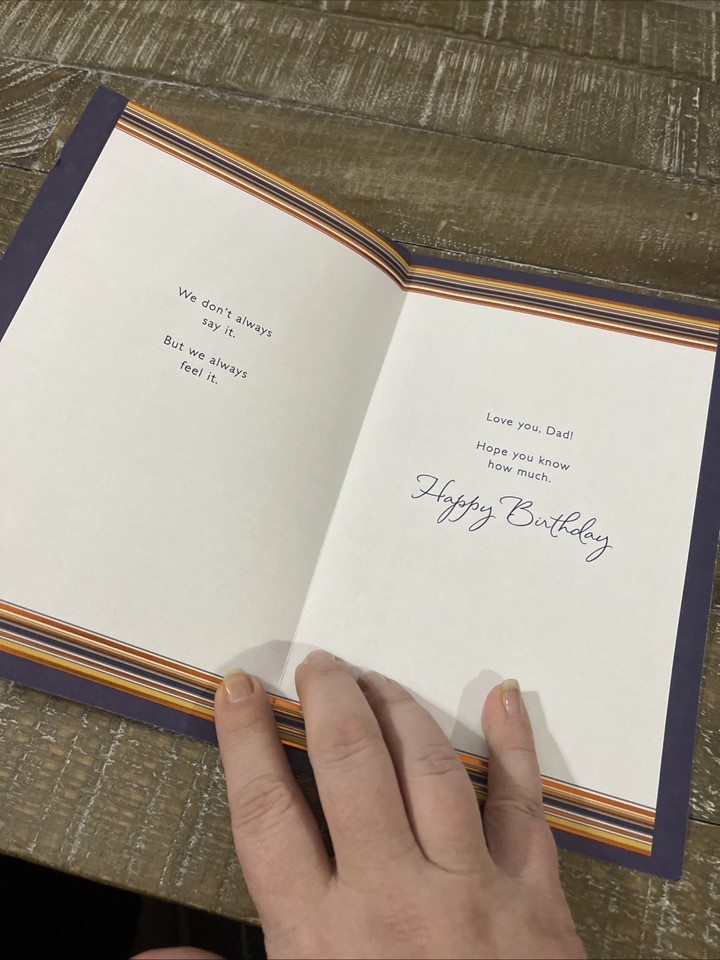 We don't always
say it.
But we always
feel it.
Love you, Dad!
Hope you know
how much.
Happy Birthday